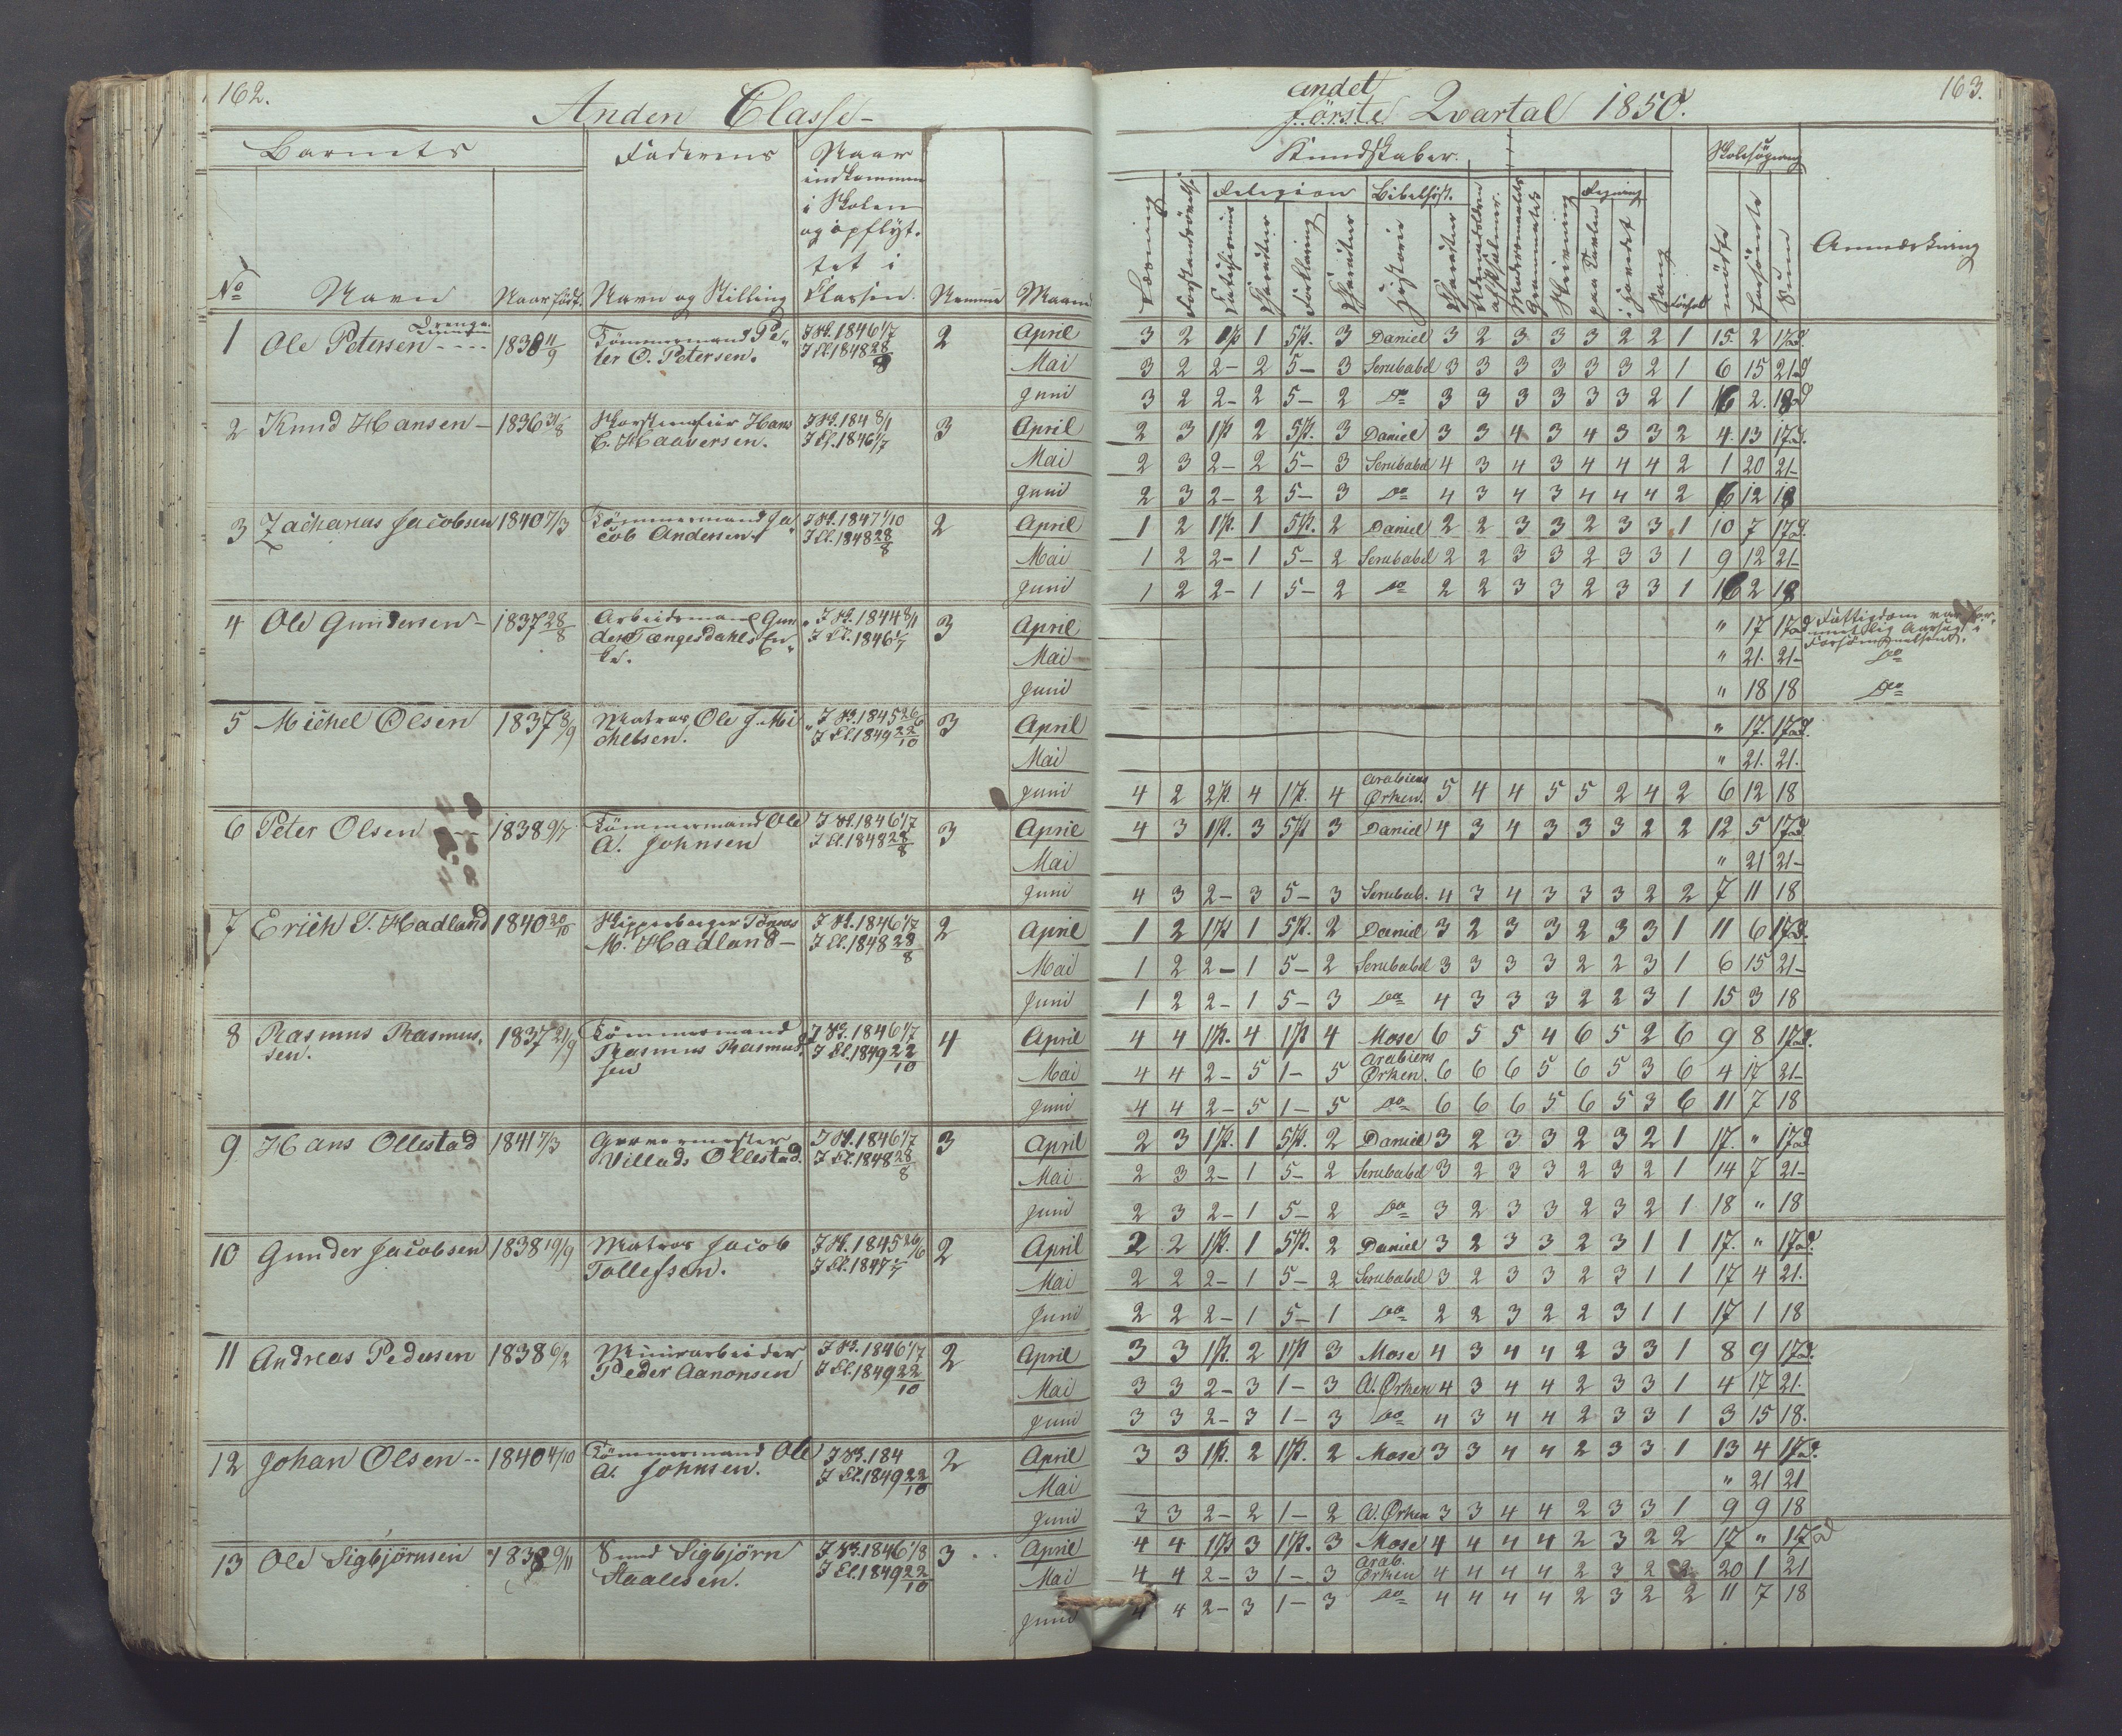 162.
Anden Classe-
Barnets
Faderens
Naar
indkommen
i Skolen
og opflyt.
tet i
Classen.
No
Navn
Naar født.
Navn og Stilling
Maaned
1 Ole Petersen 1838 11/9 Tømmermand Pe-
ter O. Petersen.
I Sk. 1846 1/7
I Cl. 1848 28/8
2
April
Mai
Juni
2 Knud Hansen - 1836 31/8
Hans
C. Haaversen.
I Sk. 184 8/1
I Cl. 1846 1/7
3
April
Mai
Juni
3 Zacharias Jacobsen 1840 7/3 Tømmermand Ja-
cob Andersen.
I Sk. 1847 1/10
I Cl. 1848 28/8
2
April
Mai
Juni
4 Ole Gundersen - 1837 28/8 Arbeidsmand Gun-
der Tængesdahls En-
ke.
I Sk. 1844 8/1
I Cl. 1846 1/7
3
April
Mai
Juni
5 Michel Olsen 1837 8/9 Matros Ole J. Mi-
chelsen.
I Sk. 1845 26/6
I Cl. 1849 22/10
3
April
Mai
Juni
6 Peter Olsen 1838 9/7 Tømmermand Ole
A. Johnsen
I Sk. 1846 1/7
I Cl. 1848 28/8
3
April
Mai
Juni
7 Erich T. Hadland 1840 20/10 Skipperborger Tønnes
M. Hadland -
I Sk. 1846 1/7
I Cl. 1848 28/8
2
April
Mai
Juni
8 Rasmus Rasmus-
sen. 1837 21/9 Tømmermand
Rasmus Rasmus-
sen
I Sk. 1846 1/7
I Cl. 1849 22/10
4
April
Mai
Juni
9 Hans Ollestad 1841 7/3 Garvermester
Villads Ollestad.
I Sk. 1846 1/7
I Cl. 1848 28/8
3
April
Mai
Juni
10 Gunder Jacobsen 1838 19/9 Matros Jacob
Tollefsen.
I Sk. 1845 26/6
I Cl. 1847 1/7
2
April
Mai
Juni
11 Andreas Pedersen 1838 6/2 Muurarbeider
Peder Aanonsen
I Sk. 1846 1/7
I Cl. 1849 22/10
2
April
Mai
Juni
12 Johan Olsen -- 1840 4/10 Tømmermand Ole
A. Johnsen.
I Sk. 184
I Cl. 1849 22/10
2
April
Mai
Juni
13 Ole Sigbjørnsen 1838 9/11
Sigbjørn
Staalesen.
I Sk. 1846 1/8
I Cl. 1849 22/10
3
April
Mai
Juni
andet
første Qvartal 1850.
163.
Kundskaber.
Skolesøgning
Religion
Bibelhist.
Regning
Læsning
Forklaring
Historie
Skrivning
paa Tavle
i Hovedet
Sang
Forhold
mødte
forsømte
Sum
Anmærkning
3 2 1P 1 5P. 3 Daniel 3 2 3 3 3 2 2 1 15 2 17 D.
3 2 2- 2 5- 3 Serubabel 3 3 3 3 3 3 2 1 6 15 21
3 2 2- 2 5- 2 Do 3 3 3 3 3 3 2 1 16 2. 18
2 3 1P 2 5P. 3 Daniel 3 3 4 3 4 3 3 2 4 13 17 D.
2 3 2- 2 5- 3 Serubabel 4 3 4 3 4 4 4 2 1 20 21-
2 3 2- 2 5- 3 Do 4 3 4 3 4 4 4 2 6 12 18
1 2 1P. 1 5P. 2 Daniel 2 2 3 3 2 3 3 1 10 7 17 D.
1 2 2- 1 5- 2 Serubabel 2 2 3 3 2 3 3 1 9 12 21-
1 2 2- 1 5- 2 Do 2 2 3 3 2 3 3 1 16 2 18
" 17 17 D Fattigdom var for-
mentlig Aarsag i
Forsømmelsen.
" 21. 21- Do
" 18 18 Do
" 17. 17 D.
" 21. 21.
4 2 2P. 4 1P. 4 Arabiens
Ørken. 5 4 4 5 5 2 4 2 6 12 18
4 3 1P. 3 5P 3 Daniel 4 3 4 3 3 3 2 2 12 5 17 D.
" 21 21-
4 3 2- 3 5- 3 Serubab. 4 3 4 3 3 3 2 2 7 11 18
1 2 1P 1 5P. 2 Daniel 3 2 3 3 2 3 3 1 11 6 17 D.
1 2 2- 1 5- 2 Serubabel 3 3 3 3 2 2 3 1 6 15 21-
1 2 2- 1 5- 3 Do 4 3 3 3 2 2 3 1 15 3 18
4 4 1P. 4 1P 4 Mose 6 5 5 4 6 5 2 6 9 8 17 D.
4 4 2- 5 1- 5 Arabiens
Ørken. 6 6 6 5 6 5 3 6 4 17 21-
4 4 2- 5 1- 5 Do 6 6 6 5 6 5 3 6 11 7 18
2 3 1P. 1 5P. 2 Daniel 3 2 3 3 2 3 2 1 17. " 17 D
2 3 2- 1 5- 2 Serubabel 3 2 3 3 2 3 2 1 14 7 21-
2 3 2- 1 5- 2 Do 3 2 3 3 2 3 2 1 18 " 18
2 2 1P. 1 5P. 2 Daniel 3 2 3 3 2 3 1 1 17. " 17 D.
2 2 2- 1 5- 2 Serubabel 3 2 3 3 2 3 1 1 17 4 21.
2 2 2- 1 5- 1 Do 2 2 3 2 2 3 1 1 17 1 18
3 3 1P. 2 1P 3 Mose 4 3 4 4 2 3 3 1 8 9 17 D.
3 3 2- 3 1- 3 A. Ørken 4 3 4 4 2 3 3 1 4 17 21-
3 3 2- 3 1- 3 Do 4 3 4 4 2 3 3 1 3 15 18.
3 3 1P. 2 1P. 2 Mose 3 3 4 4 2 3 3 1 13 4 17 D.
" 21 21
3 3 2- 2 1- 2 A. Ørken 3 3 4 4 2 3 3 1 9 9 18
4 4 1P 3 1P. 3 Mose 4 4 4 4 2 3 2 2 17 " 17 D
4 4 2- 3 1- 3 Arab.
Ørken 4 4 4 4 2 3 2 2 20 1 21
4 4 2- 3 1- 3 Do 4 4 4 4 2 3 2 2 11 7 18